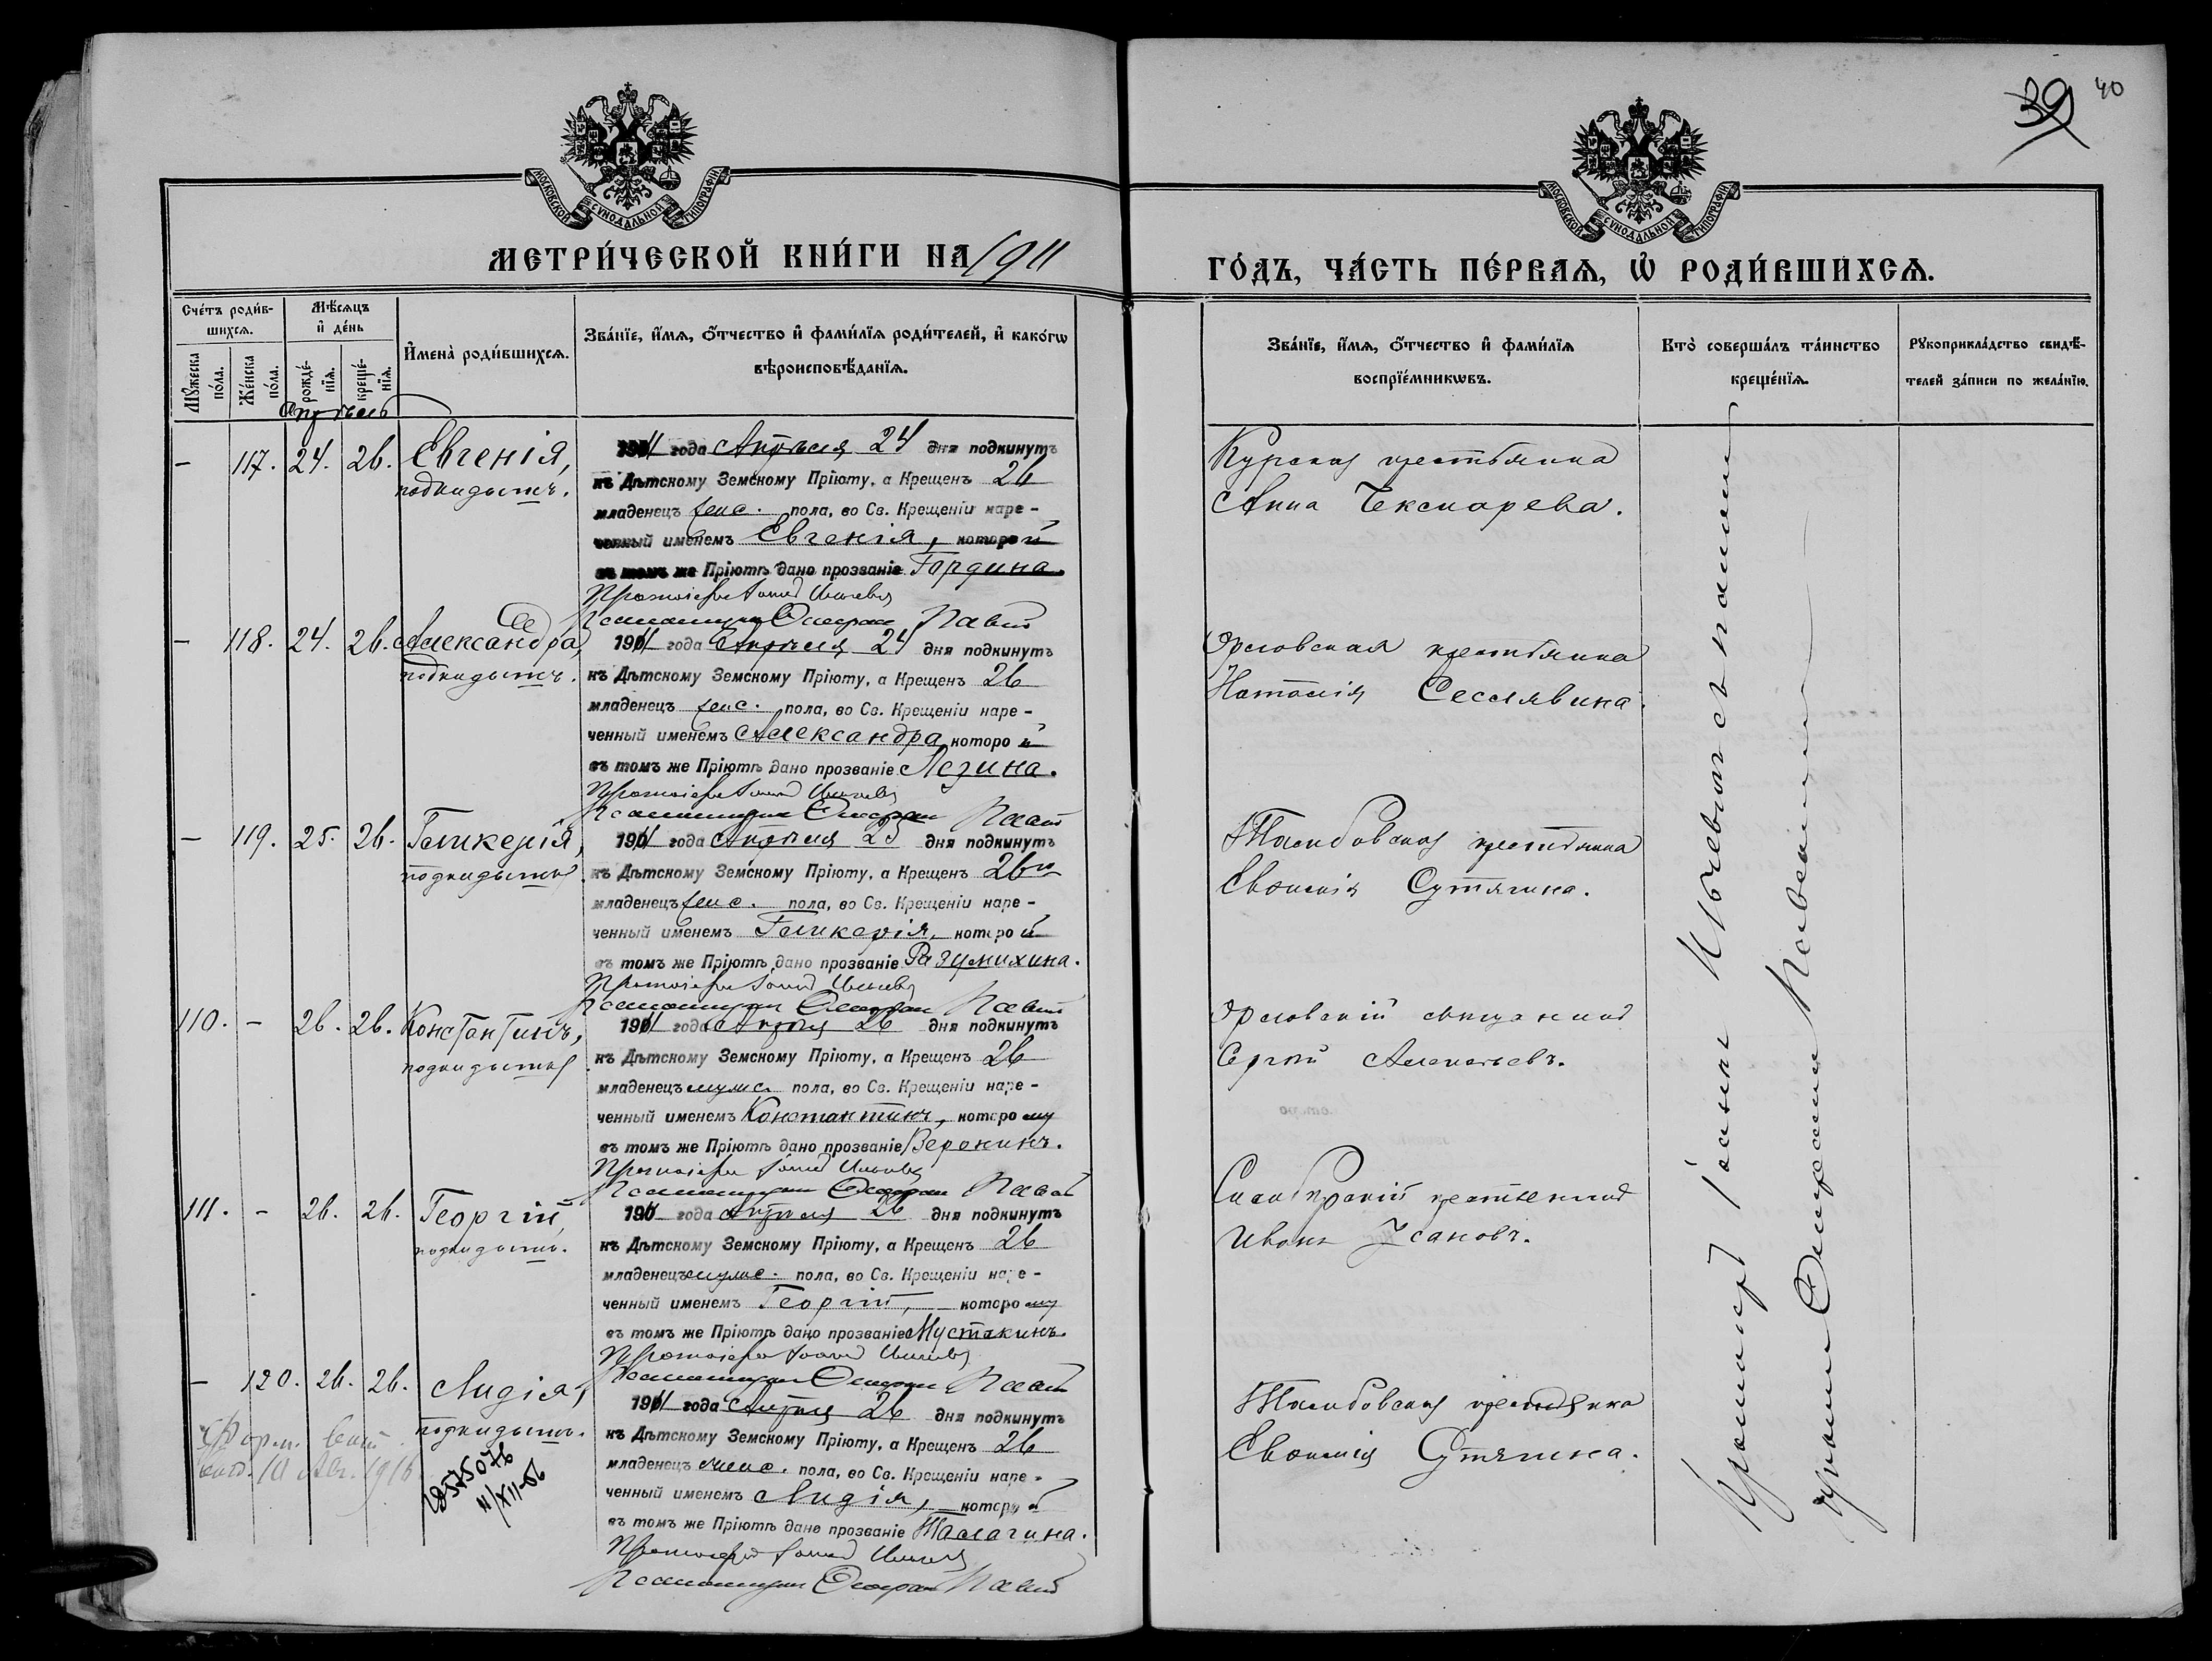 39 40
МОСКОВСКОЙ СѴНОДАЛЬНОЙ ТИПОГРАФІИ
МОСКОВСКОЙ СѴНОДАЛЬНОЙ ТИПОГРАФІИ
МЕТРИ́ЧЕСКОЙ КНИ́ГИ НА 1911
ГО́ДЪ, ЧА́СТЬ ПЕ́РВАѦ, Ѡ҆ РОДИ́ВШИХСѦ.
Сче́тъ роди́в-
шихсѧ.
Мꙋ́жеска по́ла.
Же́нска по́ла.
Мѣ́сѧцъ
и҆ де́нь
рожде́-
нїѧ.
креще́-
нїѧ.
И҆мена̀ роди́вшихсѧ.
Зва́нїе, и҆́мѧ, ѻ҆́тчество и҆ фами́лїѧ роди́телей, и҆ како́гѡ
вѣроисповѣ́данїѧ.
Зва́нїе, и҆́мѧ, ѻ҆́тчество и҆ фами́лїѧ
воспрїе́мникѡвъ.
Кто̀ соверша́лъ та́инство
креще́нїѧ.
Рꙋкоприкла́дство свидѣ́-
телей за́писи по жела́нїю.
Апрѣль
- 117. 24. 26. Евгенія,
подкидышъ.
1911 года Апрѣля 24 дня подкинутъ
къ Дѣтскому Земскому Пріюту, а Крещенъ 26
младенецъ женс. пола, во Св. Крещеніи наре-
ченный именемъ Евгенія, которой
въ томъ же Пріютѣ дано прозваніе Гордина.
Протоіерей Іоаннъ
Псаломщикъ
Курская крестьянка
Анна Чекмарева.
- 118. 24. 26. Александра,
подкидышъ.
1911 года Апрѣля 24 дня подкинутъ
къ Дѣтскому Земскому Пріюту, а Крещенъ 26
младенецъ женс. пола, во Св. Крещеніи наре-
ченный именемъ Александра которой
въ томъ же Пріютѣ дано прозваніе Лезина.
Протоіерей Іоаннъ
Псаломщикъ
Орловская крестьянка
Наталія Сеславина.
- 119. 25. 26. Гликерія,
подкидышъ.
1911 года Апрѣля 25 дня подкинутъ
къ Дѣтскому Земскому Пріюту, а Крещенъ 26
младенецъ женс. пола, во Св. Крещеніи наре-
ченный именемъ Гликерія, которой
въ томъ же Пріютѣ дано прозваніе Разумихина.
Протоіерей Іоаннъ
Псаломщикъ
Тамбовская крестьянка
Евфимія Сутягина.
110. - 26. 26. Константинъ,
подкидышъ
1911 года Апрѣля 26 дня подкинутъ
къ Дѣтскому Земскому Пріюту, а Крещенъ 26
младенецъ мужс. пола, во Св. Крещеніи наре-
ченный именемъ Константинъ, которому
въ томъ же Пріютѣ дано прозваніе Веронинъ.
Протоіерей Іоаннъ
Псаломщикъ
Орловскій мѣщанинъ
Сергѣй
111. - 26. 26. Георгій,
подкидышъ.
1911 года Апрѣля 26 дня подкинутъ
къ Дѣтскому Земскому Пріюту, а Крещенъ 26
младенецъ мужс. пола, во Св. Крещеніи наре-
ченный именемъ Георгій, которому
въ томъ же Пріютѣ дано прозваніе Мустакинъ.
Протоіерей Іоаннъ
Псаломщикъ
Симбирскій крестьянинъ
Иванъ Усановъ.
- 120. 26. 26. Лидія,
подкидышъ.
1911 года Апрѣля 26 дня подкинутъ
къ Дѣтскому Земскому Пріюту, а Крещенъ 26
младенецъ женс. пола, во Св. Крещеніи наре-
ченный именемъ Лидія, которой
въ томъ же Пріютѣ дано прозваніе Малагина.
Протоіерей Іоаннъ
Псаломщикъ
Тамбовская крестьянка
Евфимія Сутягина.
10 1916
11/XII-56
Протоіерей Іоаннъ съ псаломщикомъ